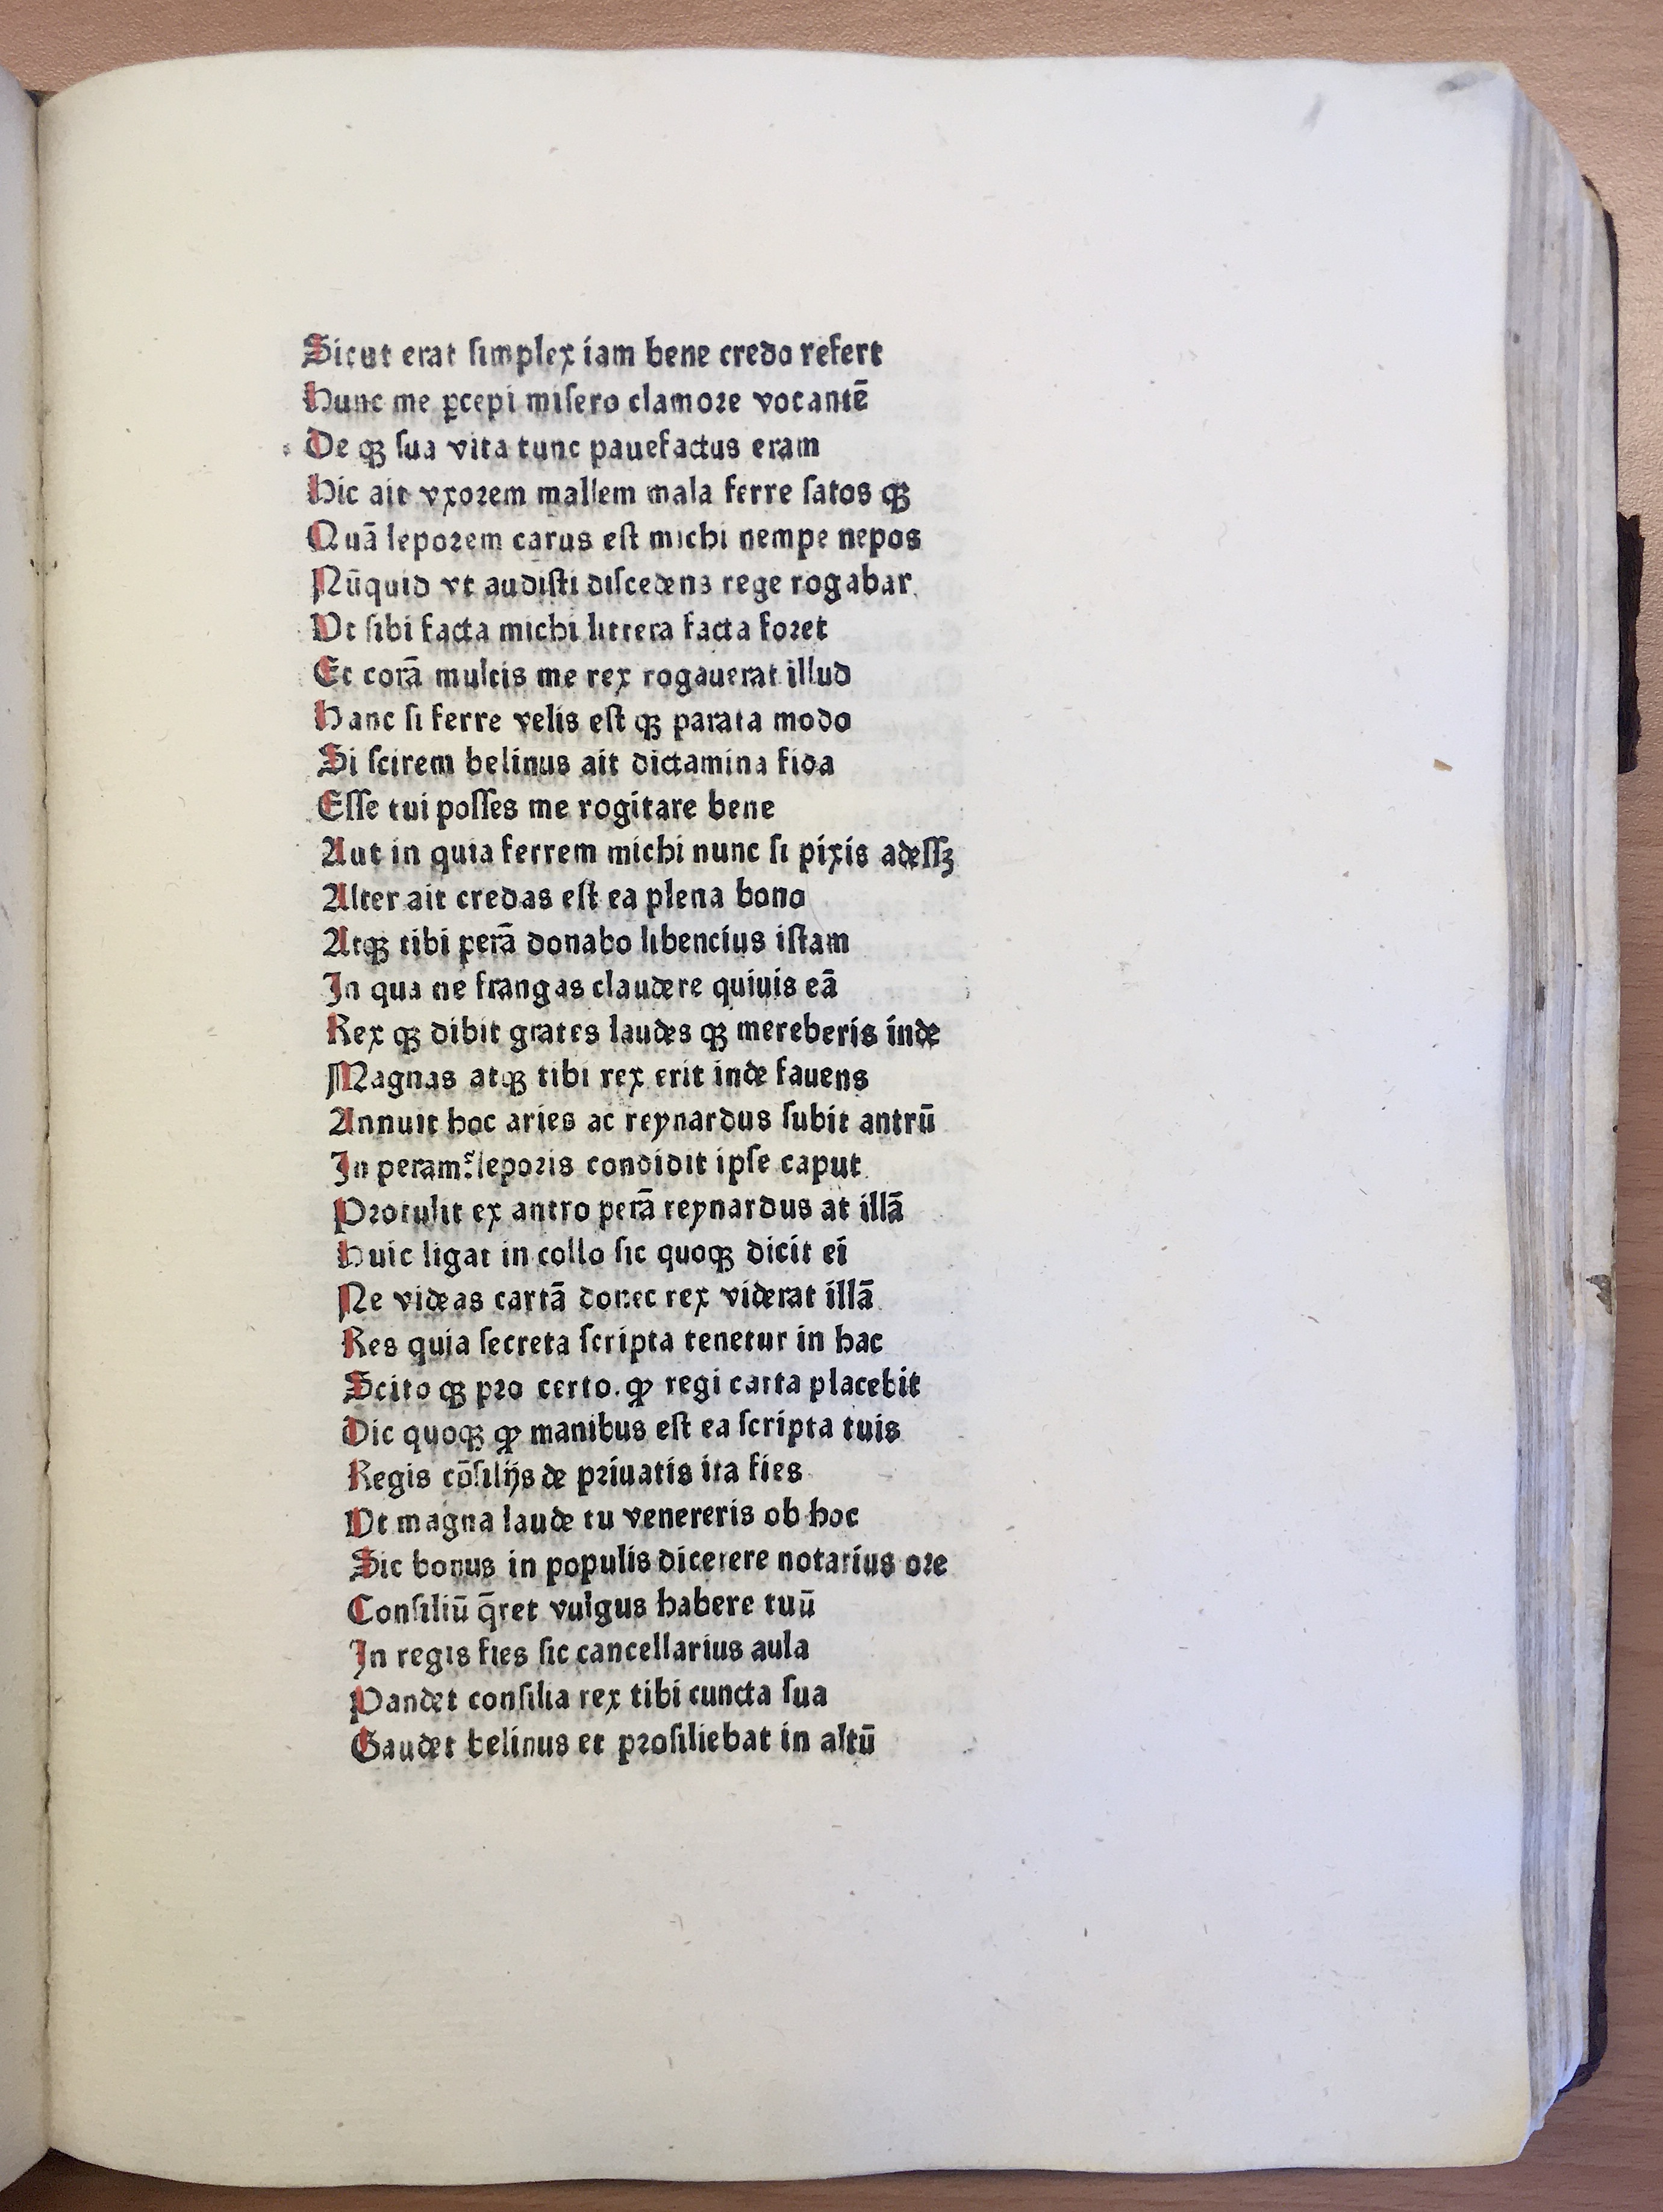 Sicut erat ſimplex iam bene credo refert
Hunc me ꝑcepi miſero clamoꝛe vocantē
De qꝫ ſua vita tunc pauefactus eram
Hic ait vxoꝛem mallem mala ferre ſatos qꝫ
Quā lepoꝛem carus eſt michi nempe nepos
Nūquid vt audiſti diſcedens rege rogabar
Vt ſibi facta michi littera facta foꝛet
Et corā multis me rex rogauerat illud
Hanc ſi ferre velis eſt qꝫ parata modo
Si ſcirem belinus ait dictamina fida
Eſſe tui poſſes me rogitare bene
Aut in quia ferrem michi nunc ſi pixis adeſſꝫ
Alter ait credas eſt ea plena bono
Atqꝫ tibi perā donabo libencius iſtam
In qua ne frangas claudere quiuis eā
Rex qꝫ dibit grates laudes qꝫ mereberis inde
Magnas atqꝫ tibi rex erit inde fauens
Annuit hoc aries ac reynardus ſubit antrū
In peram: lepoꝛis condidit ipſe caput
Pꝛotulit ex antro perā reynardus at illā
Huic ligat in collo ſic quoqꝫ dicit ei
Ne videas cartā donec rex viderat illā
Res quia ſecreta ſcripta tenetur in hac
Scito qꝫ pꝛo certo. ꝙ regi carta placebit
Dic quoqꝫ ꝙ manibus eſt ea ſcripta tuis
Regis cōſilijs de pꝛiuatis ita fies
Vt magna laude tu venereris ob hoc
Sic bonus in populis dicerere notarius oꝛe
Conſiliū q̄ret vulgus habere tuū
In regis fies ſic cancellarius aula
Pandet conſilia rex tibi cuncta ſua
Gaudet belinus et pꝛoſiliebat in altū